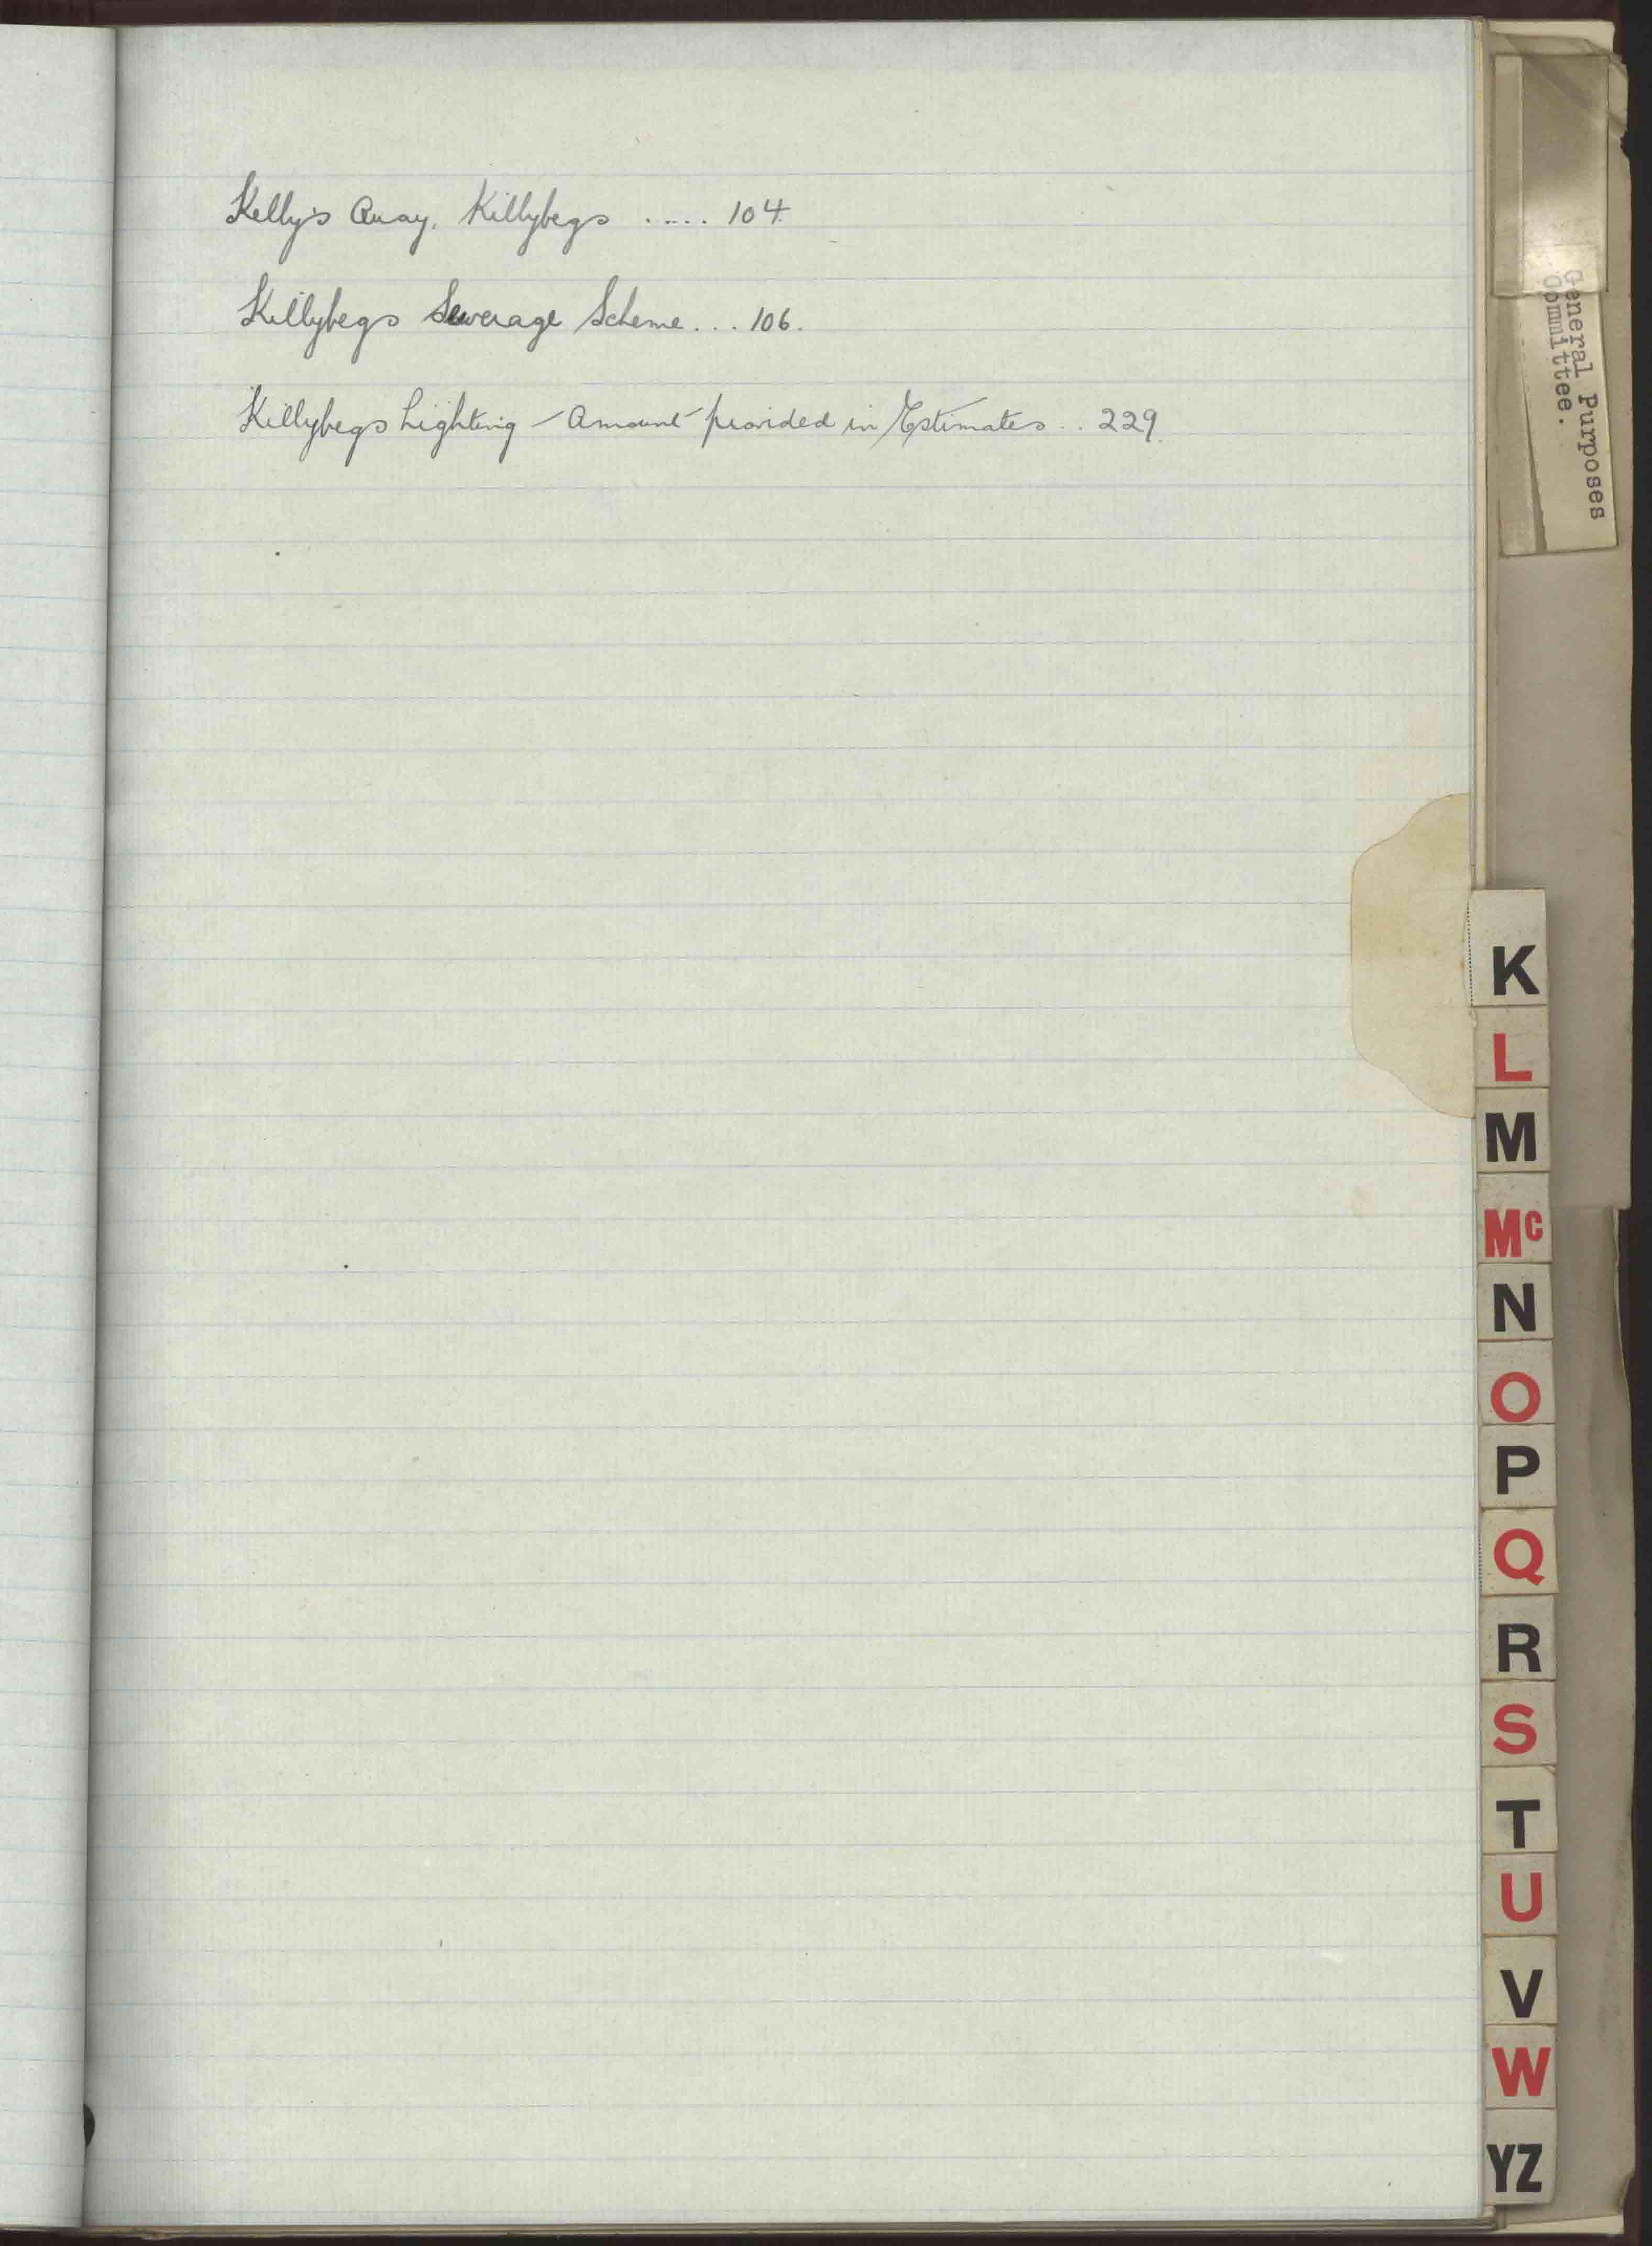 Kelly's Quay, Killybegs ..... 104.
Killybegs Sewerage Scheme... 106.
Killybegs Lighting - Amount provided in Estimates .. 229.
General Purposes
Committee.
K
L
M
Mc
N
O
P
Q
R
S
T
U
V
W
YZ